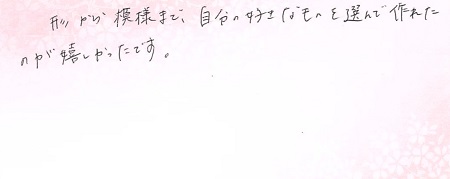 形から模様まで、自分の好きなものを選んで作れた
のが嬉しかったです。